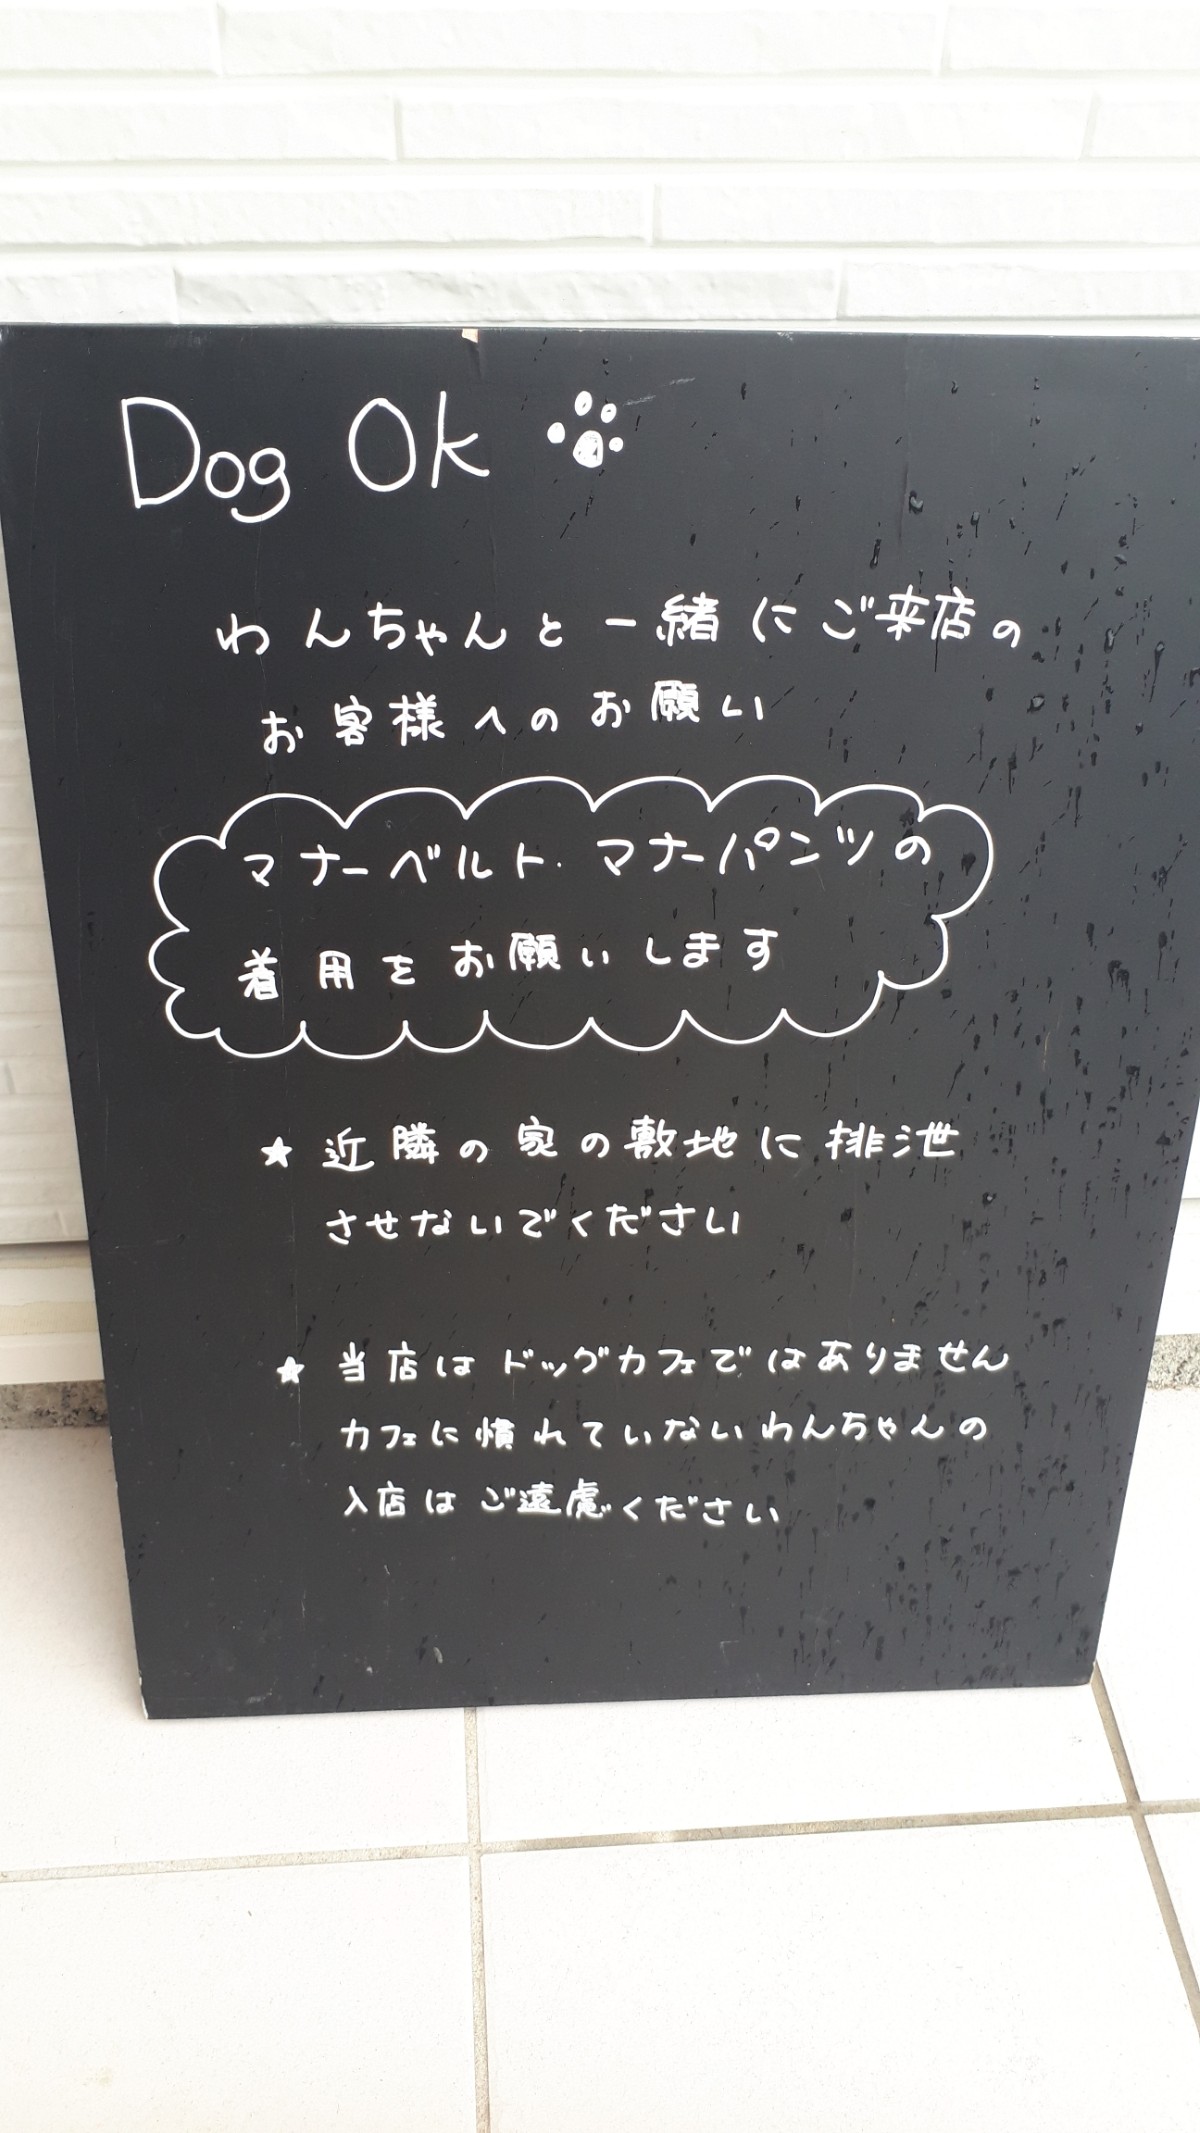 Dog Ok
わんちゃんと一緒にご来店の
お客様へのお願い
マナーベルト・マナーパンツの
着用をお願いします
★ 近隣の家の敷地に排泄
させないでください
★ 当店はドッグカフェではありません
カフェに慣れていないわんちゃんの
入店はご遠慮ください